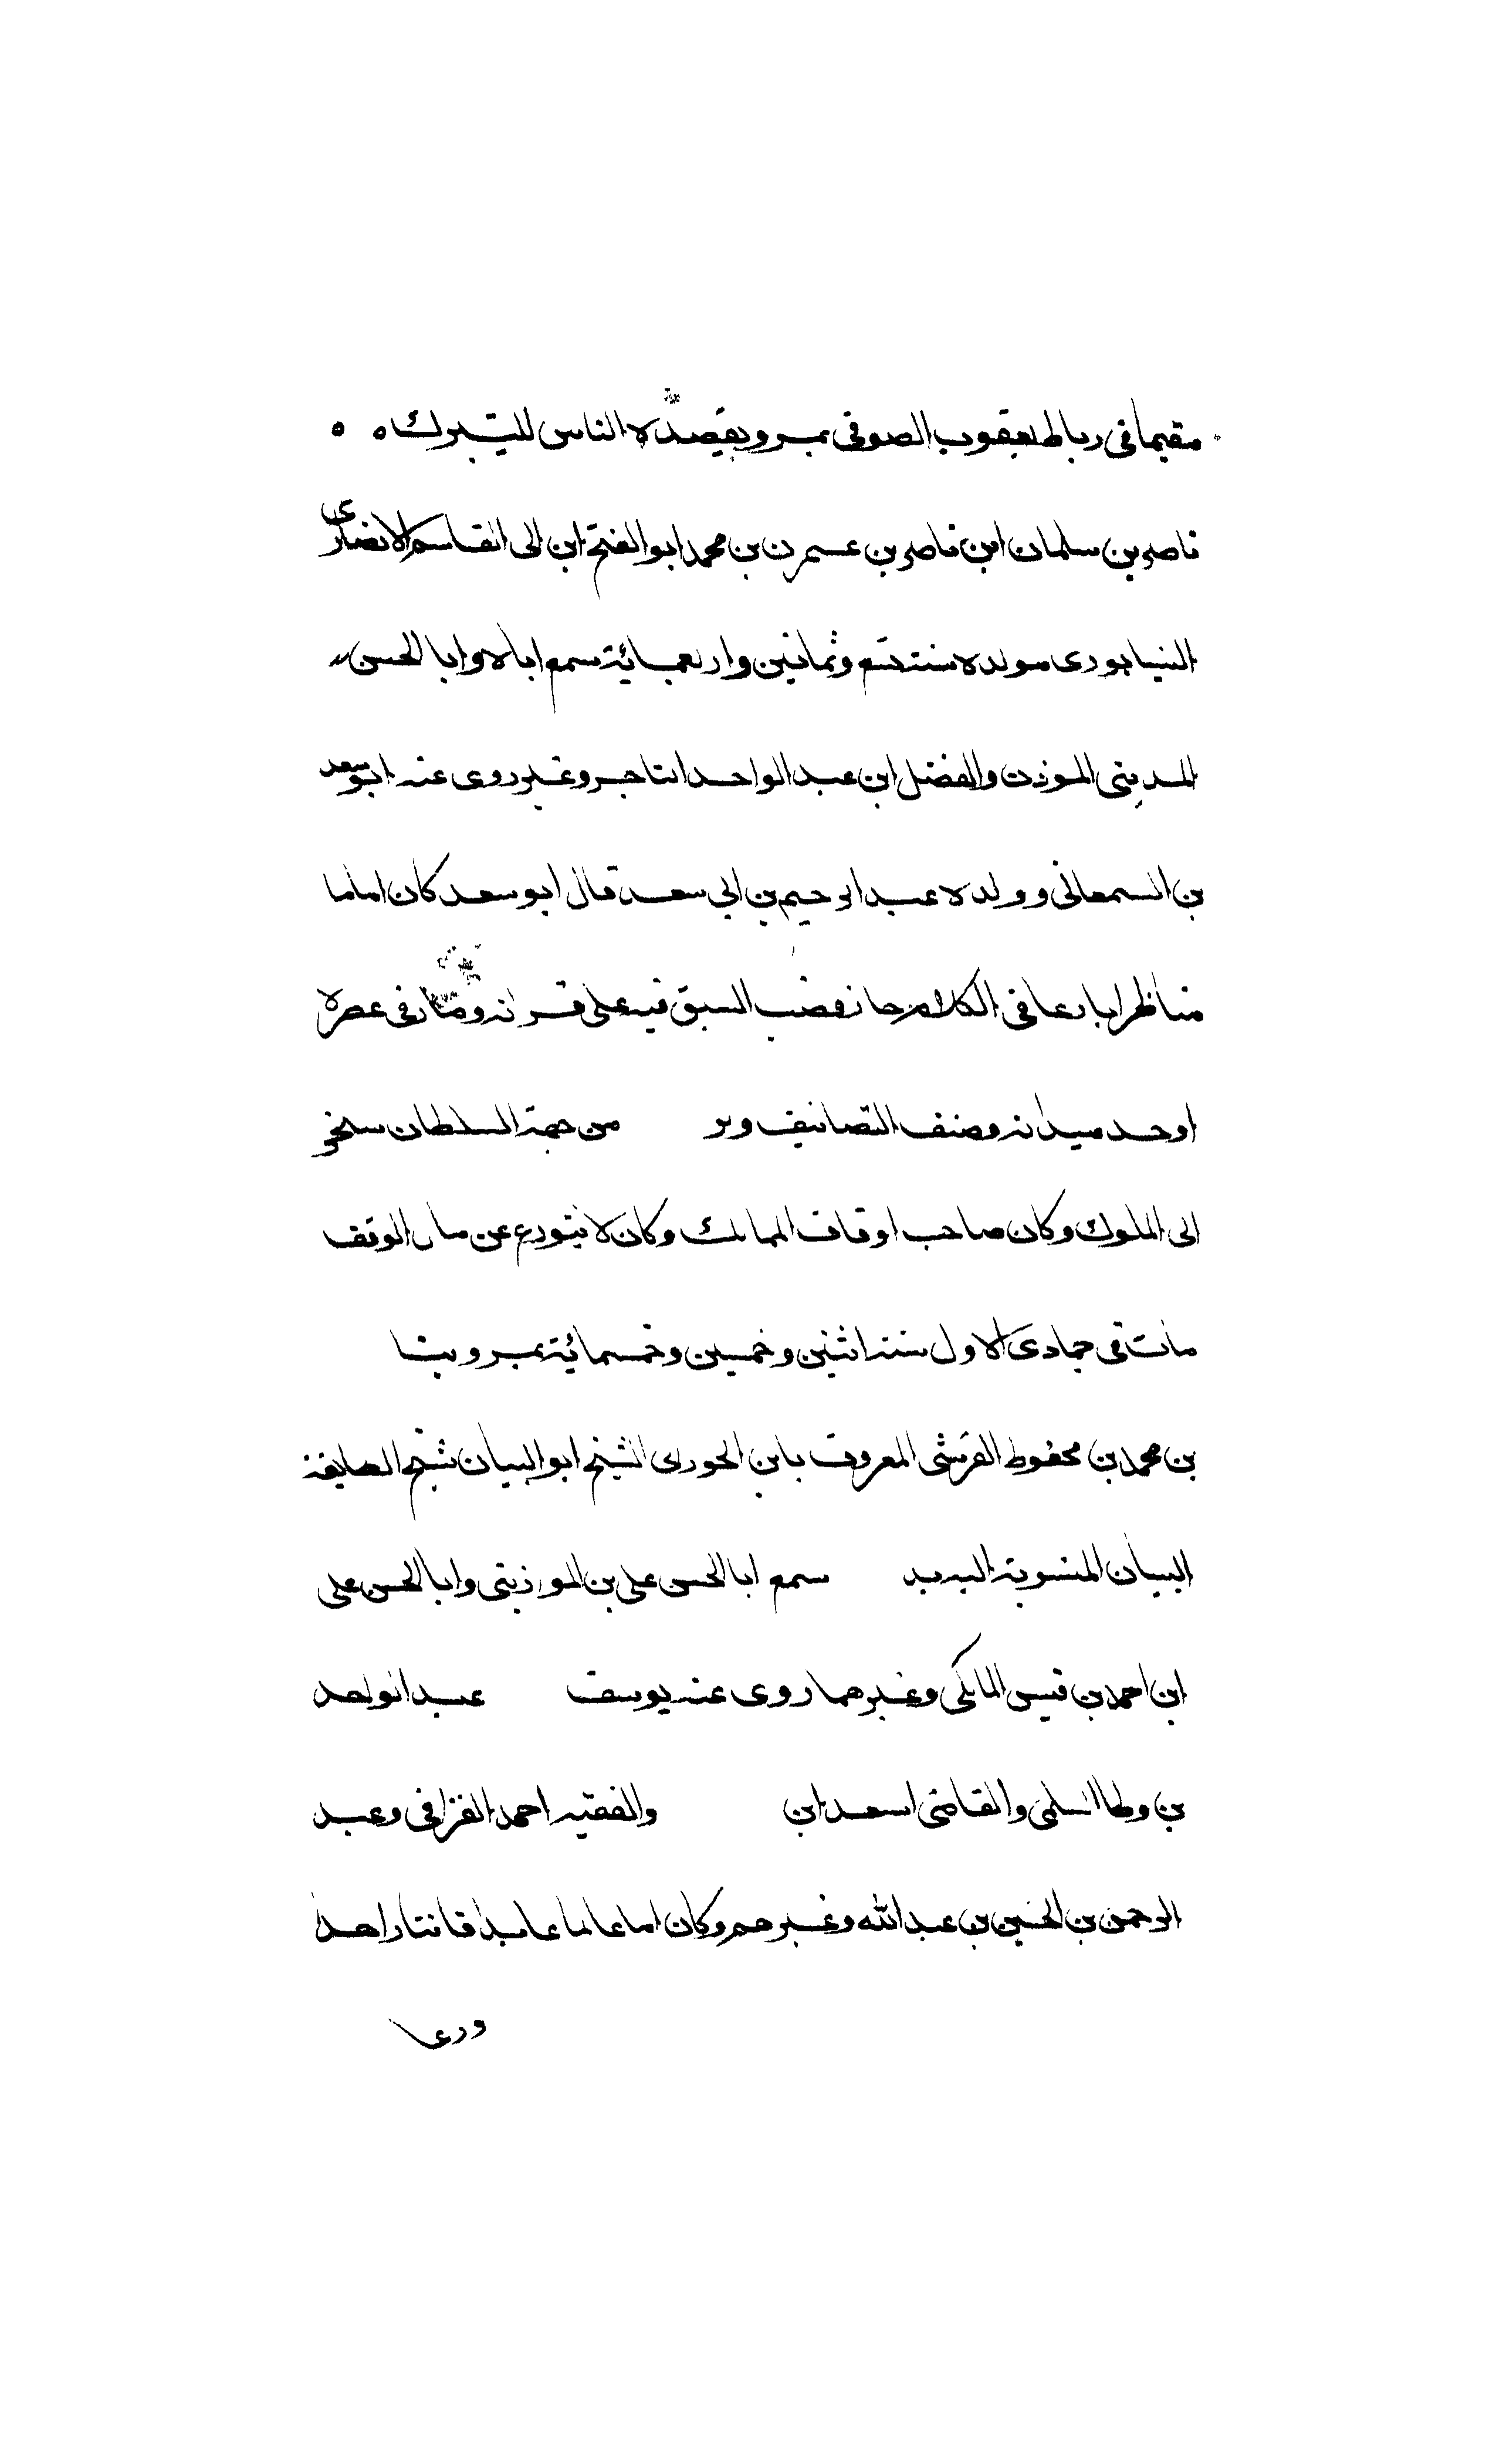 مقيما فى رباط يعقوب الصوفى بمرو يقصده الناس للتبرك ه ه
ناصر بن سلمان ابن ناصر بن عمرن بن محمد ابو الفتح ابن ابى القاسم الانصارى
النيسابورى مولده سنة تسع وثمانين واربعمائة سمع اباه وابا الحسن
المدينى الموذن والفضل ابن عبد الواحد التاجر وغير روى عنه ابو سعد
بن السمعانى وولده عبد الرحيم بن ابى سعد قال ابو سعد كان اماما
مناظرا بارعا فى الكلام حاز قصب السبق فيه على قرانه وصار فى عصره
اوحد ميدانه وصنف التصانيف وبر من جهة السلطان سنجر
الى الملوك وكان صاحب اوقاف الممالك وكان لا يتورع عن مال الوقف
مات فى جمادى الاول سنة اثنين وخمسين وخمسمائة بمرو بنا
بن محمد بن محفوظ القرشى المعروف بابن الحورى الشيخ ابو البيان شيخ الطايفة
البيان المنسوبة اليه سمع ابا الحسن على بن الموازينى وابا الحسن على
ابن احمد بن قيس المالكى وغيرهما روى عنه يوسف عبد الواحد
بن وطا السلمى والقاضى اسعد ابن والفقيه احمد الغزافى وعبد
الرحمن بن الحسين بن عبد الله وغيرهم وكان اما عالما عابدا قانتا زاهدا
ورعا